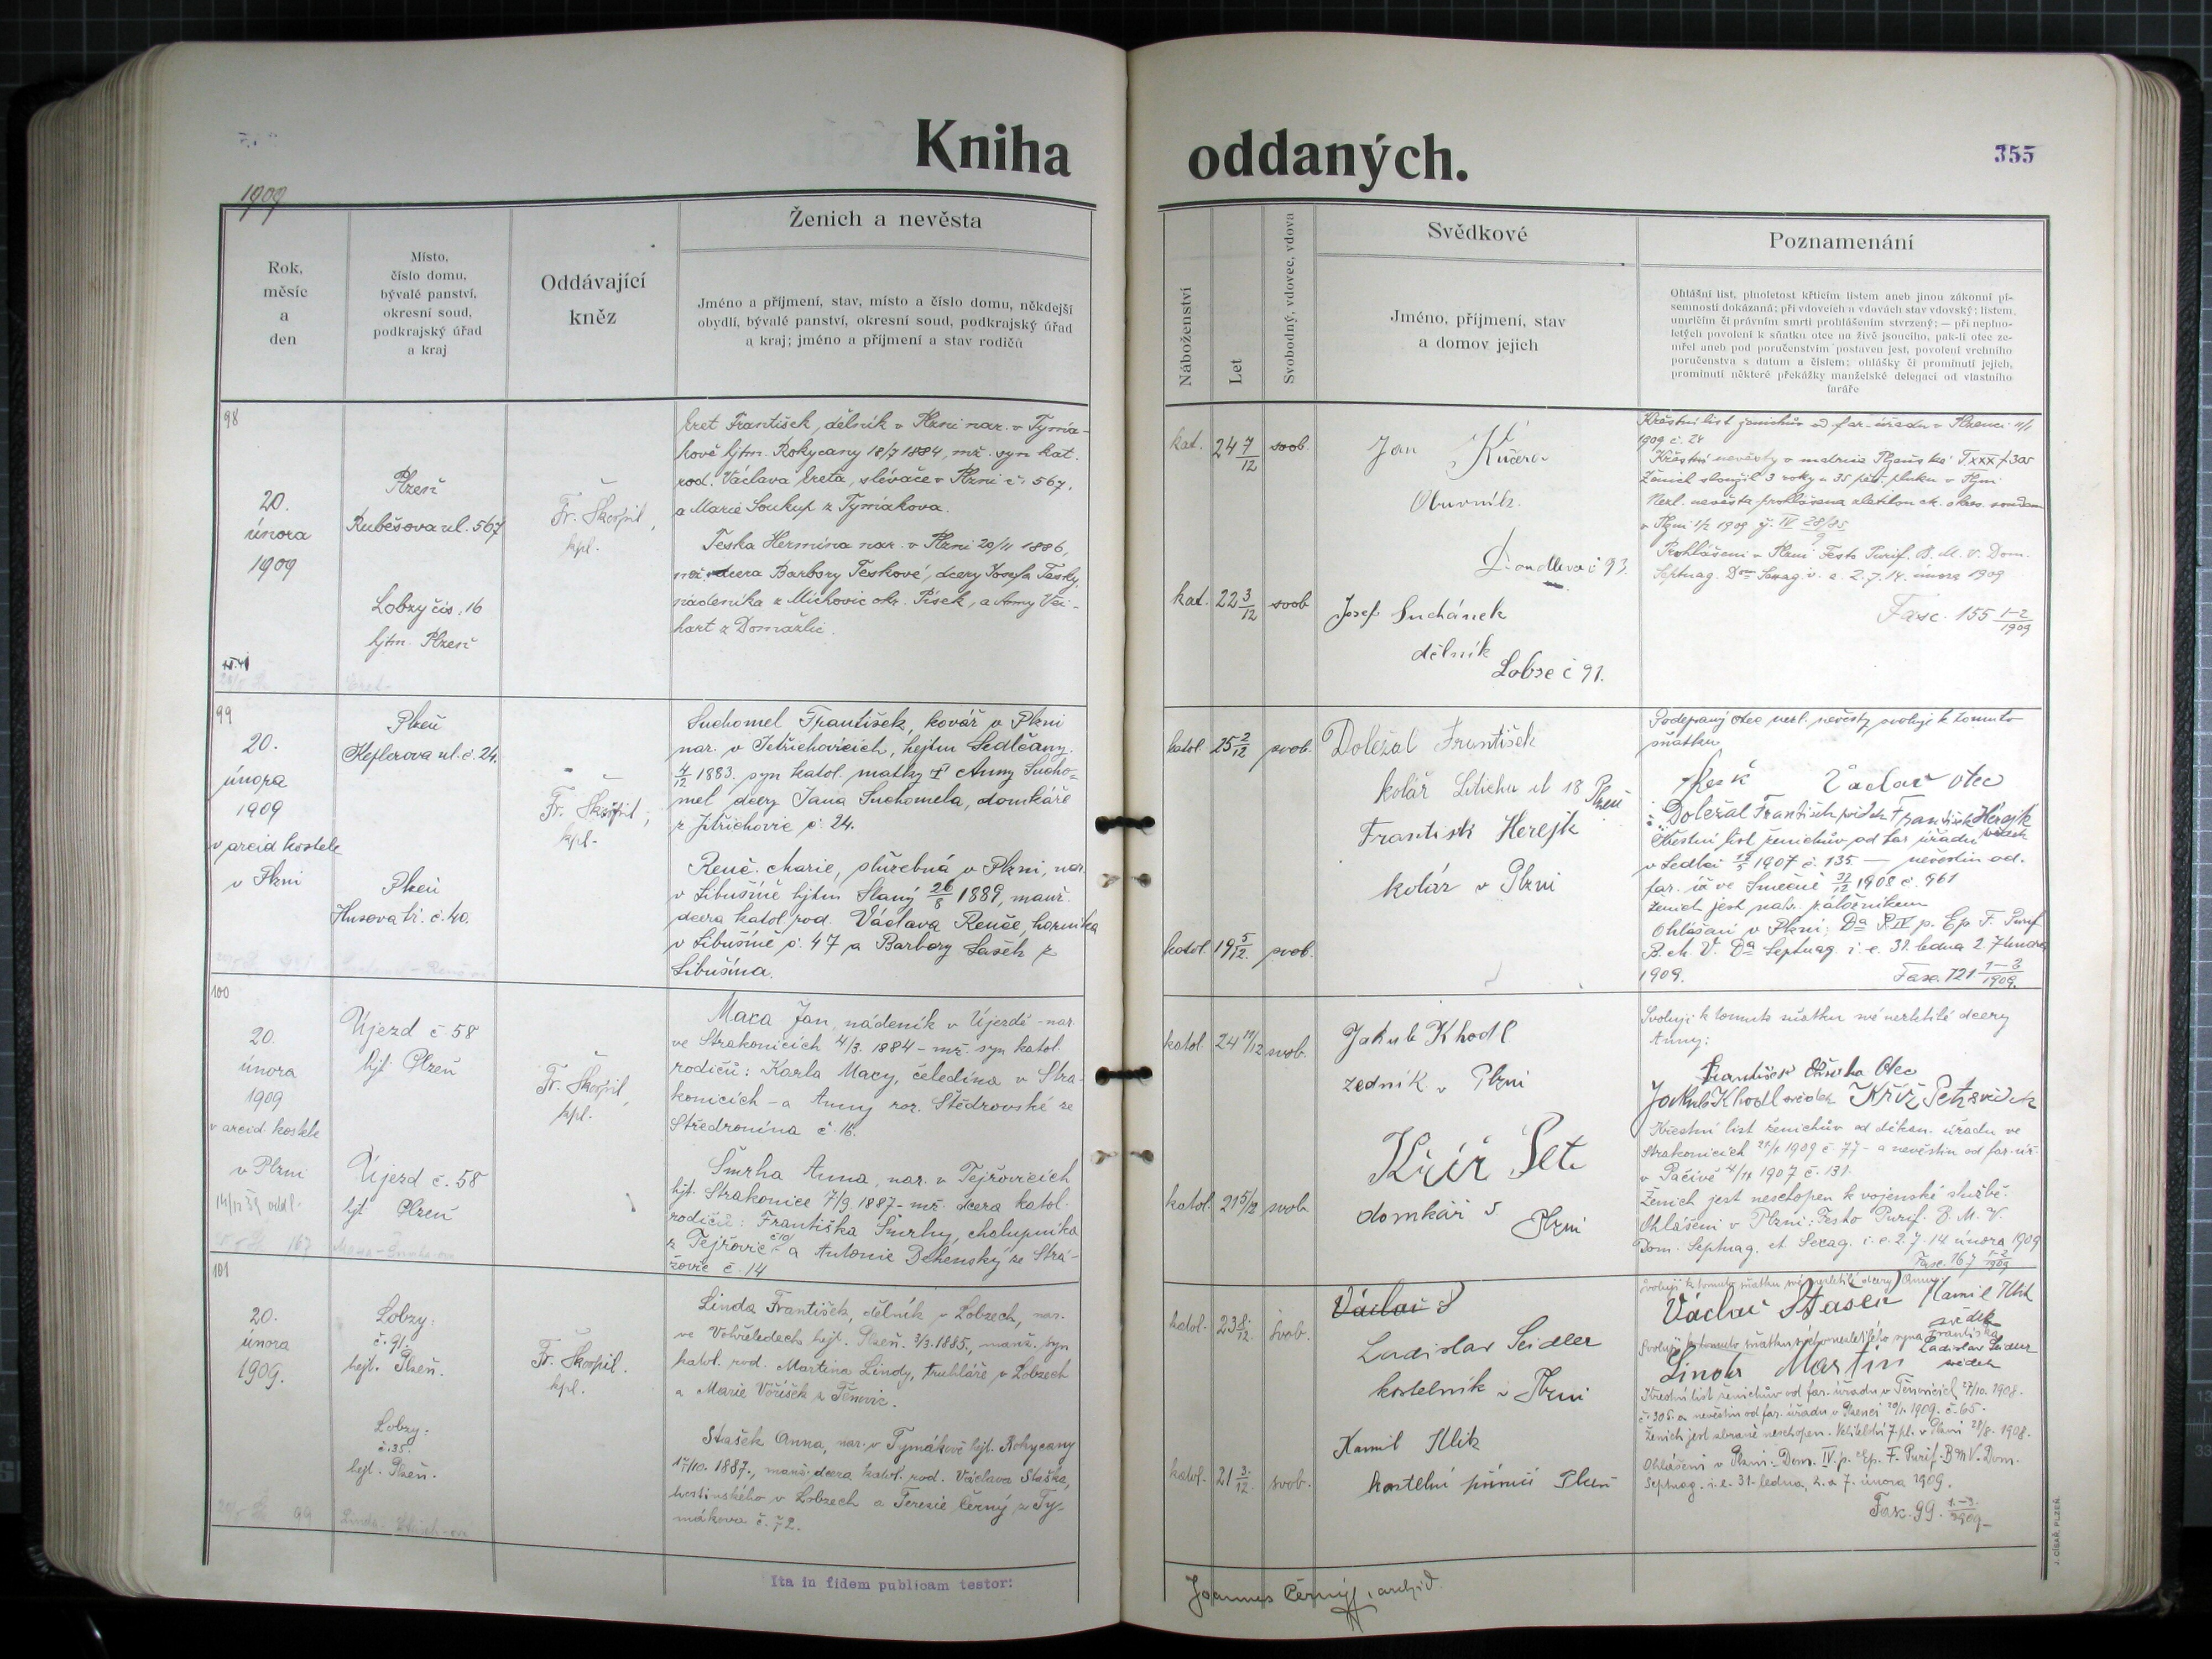 Kniha oddaných.
355
1909
Rok,
měsíc
a
den
Místo,
číslo domu,
bývalé panství,
okresní soud,
podkrajský úřad
a kraj
Oddávající
kněz
Ženich a nevěsta
Jméno a příjmení, stav, místo a číslo domu, někdejší
obydlí, bývalé panství, okresní soud, podkrajský úřad
a kraj; jméno a příjmení a stav rodičů
Náboženství
Let
Svobodný, vdovec, vdova
Svědkové
Jméno, příjmení, stav
a domov jejich
Poznamenání
Ohlášní list, plnoletost křticím listem aneb jinou zákonní pí-
semností dokázaná; při vdovcích a vdovách stav vdovský; listem,
umrlčím či právním smrti prohlášením stvrzený; — při neplno-
letých povolení k sňatku otce na živě jsoucího, pak-li otec ze-
mřel aneb pod poručenstvím postaven jest, povolení vrchního
poručenstva s datum a číslem; ohlášky či prominutí jejich,
prominutí některé překážky manželské delegací od vlastního
faráře
98
20.
února
1909
Plzeň
Rubešova ul. 567
Lobzy čís. 16
hjtm. Plzeň
Fr. Škorpil,
kpl.
František, dělník v Plzni nar. v Týmá-
kově hjtm. Rokycany 18/7 1884, mž. syn kat.
rod. Václava Creta, slévače v Plzni č. 567,
a Marie Soukup z Týmákova.
Teska Hermína nar. v Plzni 20/11 1886,
dcera Barbory Teskové, dcery Josefa Tesky,
nádeníka z Míchovic okr. Písek, a Anny
hart z Domažlic.
kat. 24 7/12 svob
kat. 22 3/12 svob
Jan Kučera
Obuvník
č 93.
Josef Suchánek
dělník
Lobze č 91.
Křestní list ženichův od far. úřadu v Plzenci
1909 č. 24
nevěsty v matrice Plzeňské T. XXX f 305
Ženich sloužil 3 roky u 35 pěš. pluku v Plzni
Nezl. nevěsta prohlášena zletilou ck. okres. soudem
v Plzni 1/2 1909
Prohlášeni v Plzni Festo Purif. B. M. V. Dom.
Septuag. Dom Sexag. i. e. 2. 7. 14. února 1909
Fasc. 155 1–2/1909
99
20.
února
1909
v arcid kostele
v Plzni
Plzeň
Keplerova ul. č. 24.
Plzeň
Husova tř. č. 40.
Fr. Škorpil,
kpl.
Suchomel František, kovář v Plzni
nar. v Jetřichovicích, hejtm Sedlčany
4/12 1883. syn katol. matky † Anny Sucho-
mel dcery Jana Suchomela, domkáře
z Jetřichovic č. 24.
Renč Marie, služebná v Plzni, nar.
v Libušíně hjtm Slaný 26/8 1889, manž.
dcera katol rod. Václava Renče, horníka
v Libušíně č. 47 a Barbory Lasěk z
Libušína.
katol. 25 2/12 svob.
katol. 19 5/12. svob.
Doležal František
kolář ul 18 Plzeň
František Herejk
kolář v Plzni
Podepsaný otec nezl. nevěsty svoluje k tomuto
sňatku
Václav otec
Doležal František svědek František Herejk
svědek
Křestní list ženichův od far úřadu
v Sedlci 1907 č. 135 — nevěstin od.
far. úř ve Smečně 1908 č. 961
Ženich jest nahr. záložníkem
Ohlášeni v Plzni: Da IV p. Ep F. Purif
B. M. V. Da Septuag. i. e. 31. ledna 2. 7 února
1909. Fasc. 121 1–3/1909.
100
20.
února
1909
v arcid. kostele
v Plzni
Újezd č. 58
hjt Plzeň
Újezd č. 58
hjt Plzeň
Fr. Škorpil,
kpl.
Maca Jan, nádeník v Újezdě – nar.
ve Strakonicích 4/3. 1884 – mž. syn katol.
rodičů: Karla Macy, čeledína v Stra-
konicích – a Anny roz. Štědronské ze
Štědronína č. 16.
Šmrha Anna, nar. v Tejřovicích
hjt. Strakonice 7/9 1887 – mž. dcera katol.
rodičů: Františka Šmrhy, chalupníka
z Tejřovic č 10 a Antonie Behenský ze Strá-
žovic č. 14
katol. 24 11/12 svob.
katol. 21 5/12 svob.
Jakub Khodl
zedník v Plzni
Kříž Petr
domkář v
Plzni
Svoluji k tomuto sňatku své nezletilé dcery
Anny:
František Šmrha Otec
Jakub Khodl svědek Kříž Petr svědek
Křestní list ženichův od děkan. úřadu ve
Strakonicích 21/1 1909 č 77 – a nevěstin od far. úř.
v Pačivě 4/11 1907 č. 131.
Ženich jest neschopen k vojenské službě.
Ohlášeni v Plzni: Festo Purif. B. M. V.
Dom. Septuag. et. Sexag. i. e. 2. 7. 14 února 1909
Fasc. 167 1–2/1909
101
20.
února
1909.
Lobzy:
č. 91.
hejt. Plzeň.
Lobzy:
č. 35.
hejt. Plzeň.
Fr. Škorpil.
kpl.
Linda František, dělník v Lobzech, nar.
ve Vohřeledech hejt. Plzeň. 3/3. 1885., manž. syn
katol. rod. Martina Lindy, truhláře v Lobzech
a Marie Voříšek z Těnovic.
Stašek Anna, nar. v Týmákově hejt. Rokycany
17/10. 1887., manž. dcera katol. rod. Václava Staška,
hostinského v Lobzech a Terezie Černý z Tý-
mákova č. 72.
katol. 23 8/12. svob.
katol. 21 3/12. svob.
Václav S
Ladislav Seidler
kostelník v Plzni
Kamil Hlik
kostelní Plzeň
Svoluji k tomuto sňatku své nezletilé dcery Anny:
Václav Stašek Kamil Hlik
svědek
Svoluji k tomuto sňatku svého nezletilého syna Františka
Linda Martin Ladislav Seidler
svědek
Křestní list ženichův od far. úřadu v Těnovicích 27/10. 1908.
č. 305. a nevěstin od far. úřadu v Plzenci 20/1. 1909. č. 65.
Ženich jest zbraně neschopen. v Plzni 28/8. 1908.
Ohlášeni v Plzni: Dom. IV. p. Ep. F. Purif. B M V. Dom.
Septuag. i. e. 31. ledna, 2. a 7. února 1909.
Fasc. 99. 1.–3./1909
Ita in fidem publicam testor:
Joannes Černý, archid.
J. CÍSAŘ, PLZEŇ.